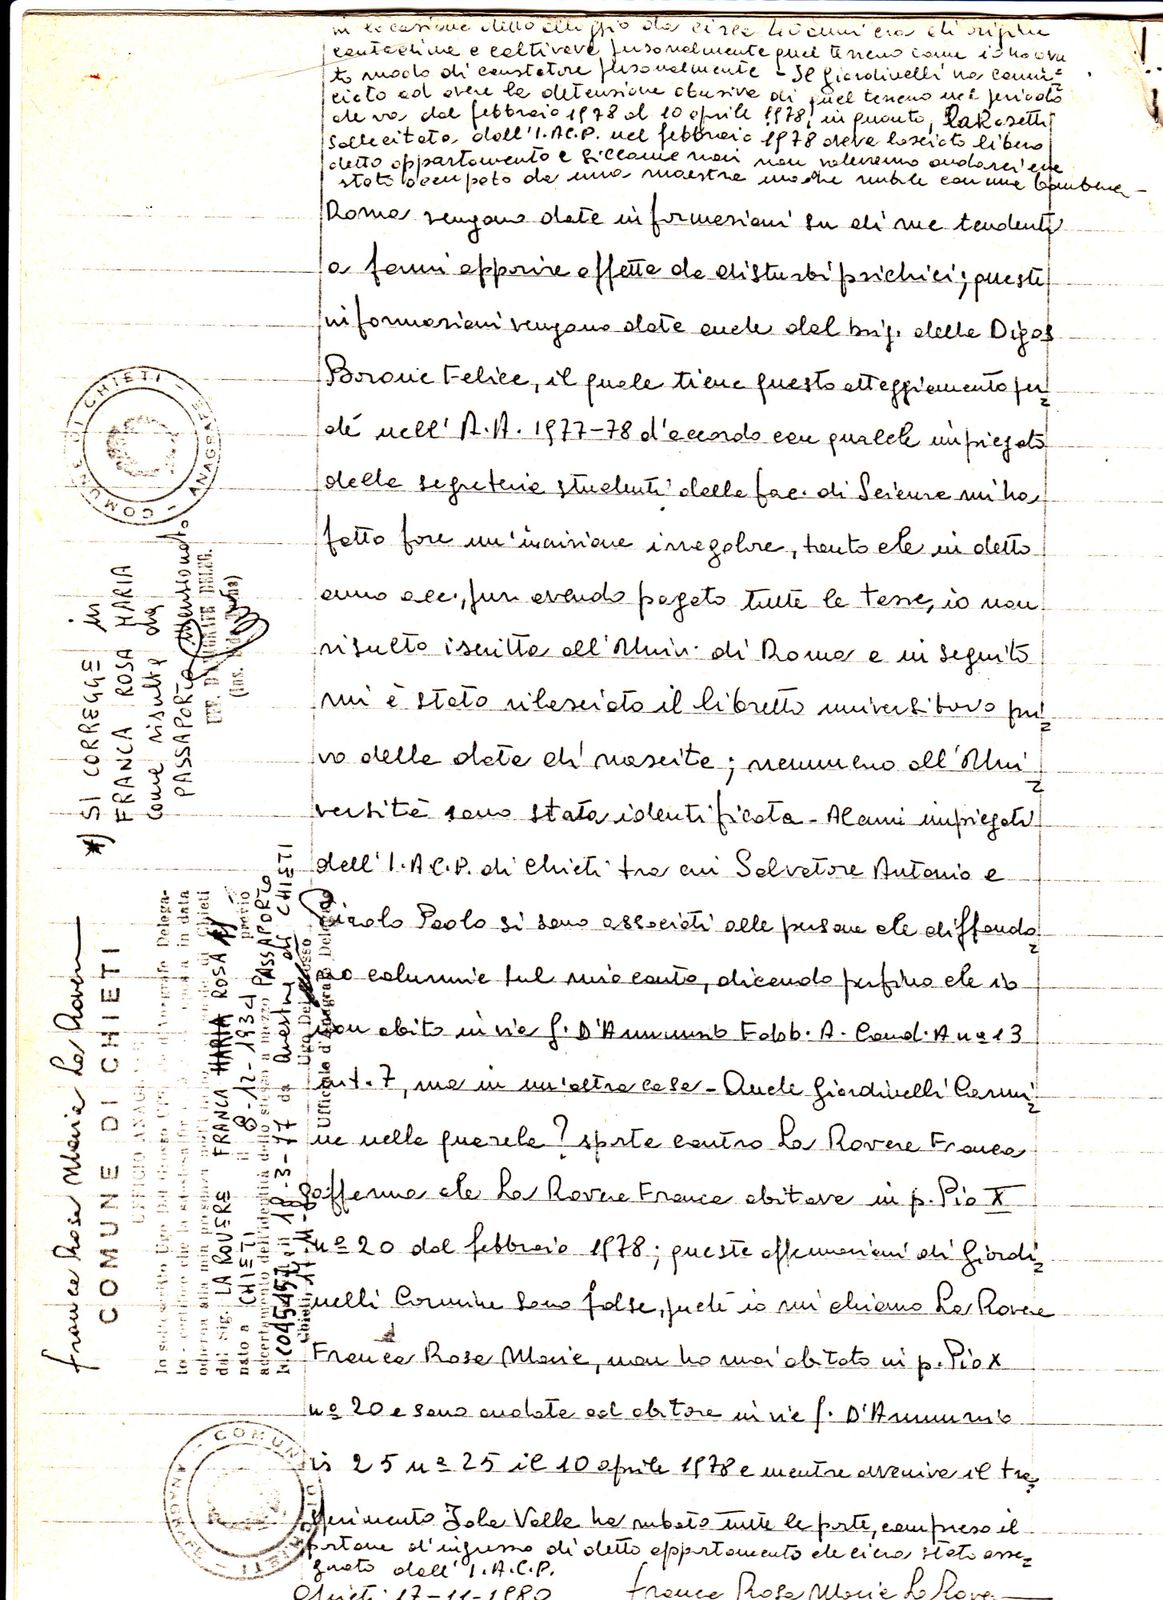 in occasione dello alloggio da circa 40 anni era di origine
contadine e coltivava personalmente quel terreno come io ho avu
to modo di constatare personalmente - Il Giardinelli ha comin=
ciato ad avere la detenzione abusiva di quel terreno nel periodo
che va dal febbraio 1978 al 10 aprile 1978, in quanto, la Rosetti
sollecitata dall'I.A.C.P. nel febbraio 1978 aveva lasciato libero
detto appartamento e siccome noi non volevamo andarci era
stato occupato da una maestra madre nubile con una bambina -
Roma vengano date informazioni su di me tendenti
a farmi apparire affetta da disturbi psichici; queste
informazioni vengano date anche dal brig. della Digos
Borone Felice, il quale tiene questo atteggiamento per=
ché nell'A.A. 1977-78 d'accordo con qualche impiegato
della segreteria studenti della fac. di Scienze mi ha
fatto fare un'iscrizione irregolare, tanto che in detto
anno acc., pur avendo pagato tutte le tasse, io non
risulto iscritta all'Univ. di Roma e in seguito
mi è stato rilasciato il libretto universitario pri=
vo della data di nascita; nemmeno all'Uni=
versità sono stata identificata - Alcuni impiegati
dell'I.A.C.P. di Chieti tra cui Salvatore Antonio e
Paolo si sono associati alle persone che diffondo=
no calunnie sul mio conto, dicendo perfino che io
non abito in via G. D'Annunzio Fabb. A. Cond. A nº 13
int. 7, ma in un'altra casa - Anche Giardinelli Carmi=
ne nella querela ? sporta contro La Rovere Franca
afferma che La Rovere Franca abitava in p. Pio X
nº 20 dal febbraio 1978; queste affermazioni di Giardi=
nelli Carmine sono false, perché io mi chiamo La Rovere
Franca Rosa Maria, non ho mai abitato in p. Pio X
nº 20 e sono andata ad abitare in via G. D'Annunzio
is 25 nº 25 il 10 aprile 1978 e mentre avveniva il tra=
sferimento Iole Valle ha rubato tutte le porte, compreso il
portone d'ingresso di detto appartamento che ci era stato asse=
gnato dall'I.A.C.P.
Chieti 17-11-1980 Franca Rosa Maria La Rovere
*) SI CORREGGE in
FRANCA ROSA MARIA
come risulta da
PASSAPORTO menzionato
COMUNE DI CHIETI - ANAGRAFE
Franca Rosa Maria La Rovere
COMUNE DI CHIETI
UFFICIO ANAGRAFE
Io sottoscritto Ugo Del Grosso Uff. d'Anagrafe Delega-
to - certifico che la
odierna alla mia presenza
dal Sig. LA ROVERE FRANCA MARIA ROSA *)
nato a CHIETI il 8-12-1934 previo
accertamento dell'identità dello stesso a mezzo PASSAPORTO
il 18-3-77 da Questura di CHIETI
Chieti 17.11.80 Ugo Del Grosso
Ufficiale d'Anagrafe Delegato
COMUNE DI CHIETI - ANAGRAFE